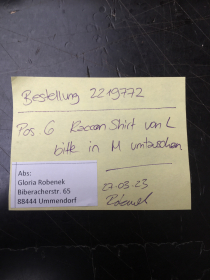 Bestellung 2219772
Pos. 6 Racoon Shirt von L
bitte in M umtauschen
Abs:
Gloria Robenek
Biberacherstr. 65
88444 Ummendorf
27.03.23
Robenek